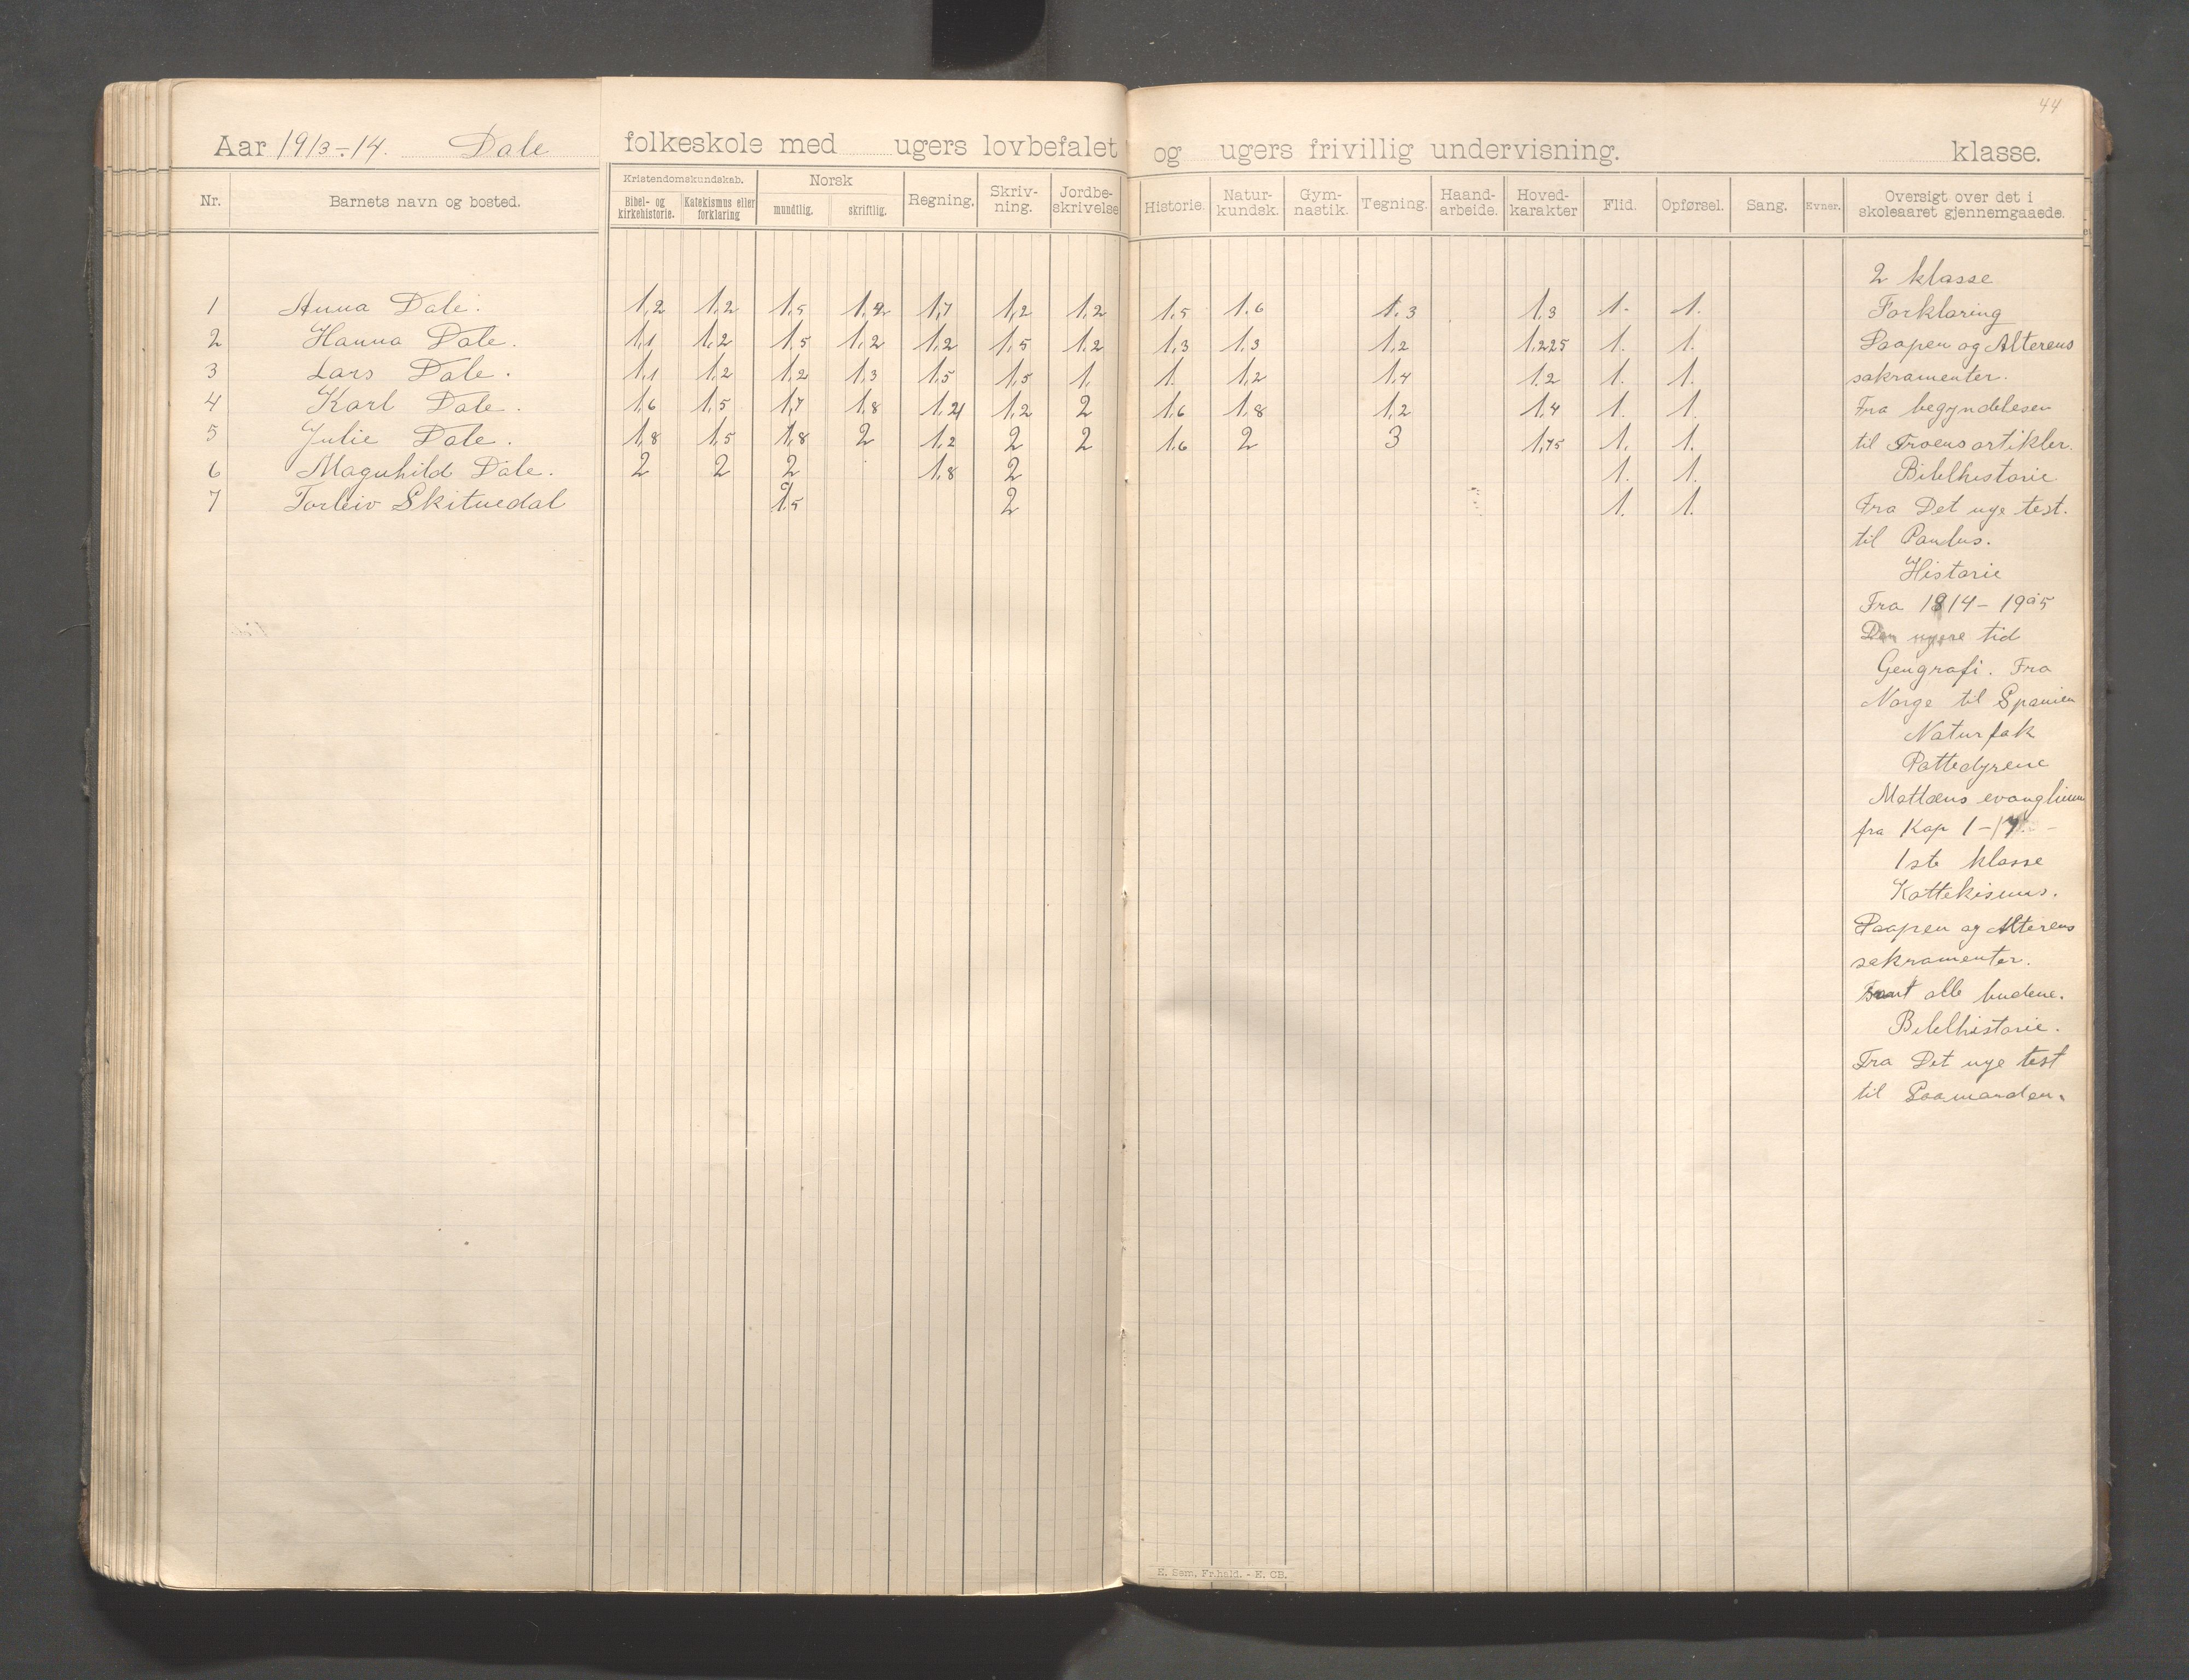 44
Aar 1913-14. Dale folkeskole med ugers lovbefalet og ugers frivillig undervisning. klasse.
Nr. Barnets navn og bosted. Kristendomskundskab. Bibel- og kirkehistorie. Katekismus eller forklaring Norsk mundtlig. skriftlig. Regning. Skriv-ning. Jordbe-skrivelse Historie. Natur-kundsk. Gym-nastik. Tegning. Haand-arbeide. Hoved-karakter Flid. Opførsel. Sang. Evner. Oversigt over det i skoleaaret gjennemgaaede.
1 Anna Dale. 1,2 1,2 1,5 1,2 1,7 1,2 1,2 1,5 1,6 1,3 1,3 1. 1.
2 Hanna Dale. 1,1 1,2 1,5 1,2 1,2 1,5 1,2 1,3 1,3 1,2 1,225 1. 1.
3 Lars Dale. 1,1 1,2 1,2 1,3 1,5 1,5 1. 1. 1,2 1,4 1,2 1. 1.
4 Karl Dale. 1,6 1,5 1,7 1,8 1,21 1,2 2 1,6 1,8 1,2 1,4 1. 1.
5 Julie Dale. 1,8 1,5 1,8 2 1,2 2 2 1,6 2 3 1,75 1. 1.
6 Magnhild Dale. 2 2 2 1,8 2 1. 1.
7 Torleiv Skitnedal 1,5 2 1. 1.
2 klasse
Forklaring
Daapen og Alterens
sakramenter.
Fra begyndelesen
til Troensartikler.
Bibelhistorie
Fra Det nye test.
til Paulus.
Historie
Fra 1814-1905
Den nyere tid
Geografi. Fra
Norge til Spanien
Naturfak
Pattedyrene
Mattæus evanglium
fra Kap 1-17.
1ste klasse
Kattekismus.
Daapen og Alterens
sakramenter.
samt alle budene.
Bibelhistorie.
Fra Det nye test
til Saamanden.
E. Sem, Fr.hald. - E. CB.